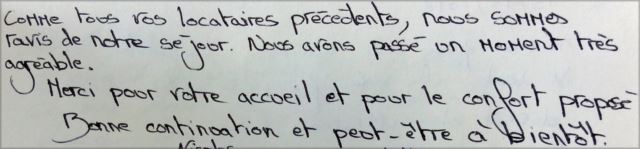 Comme tous vos locataires précédents, nous sommes
ravis de notre séjour. Nous avons passé un moment très
agréable.
Merci pour votre accueil et pour le confort proposé
Bonne continuation et peut-être à bientôt.